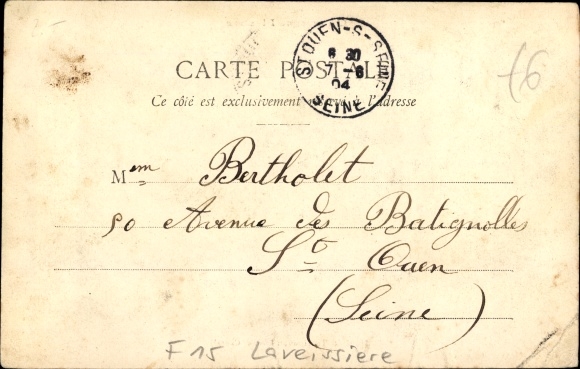 ST OUEN-S-SEINE
8 30
7 - 6
04
SEINE
CARTE POSTALE
Ce côté est exclusivement réservé à l'adresse
Mem Bertholet
50 Avenue des Batignolles
St Ouen
(Seine)
F 15 Laveissiere